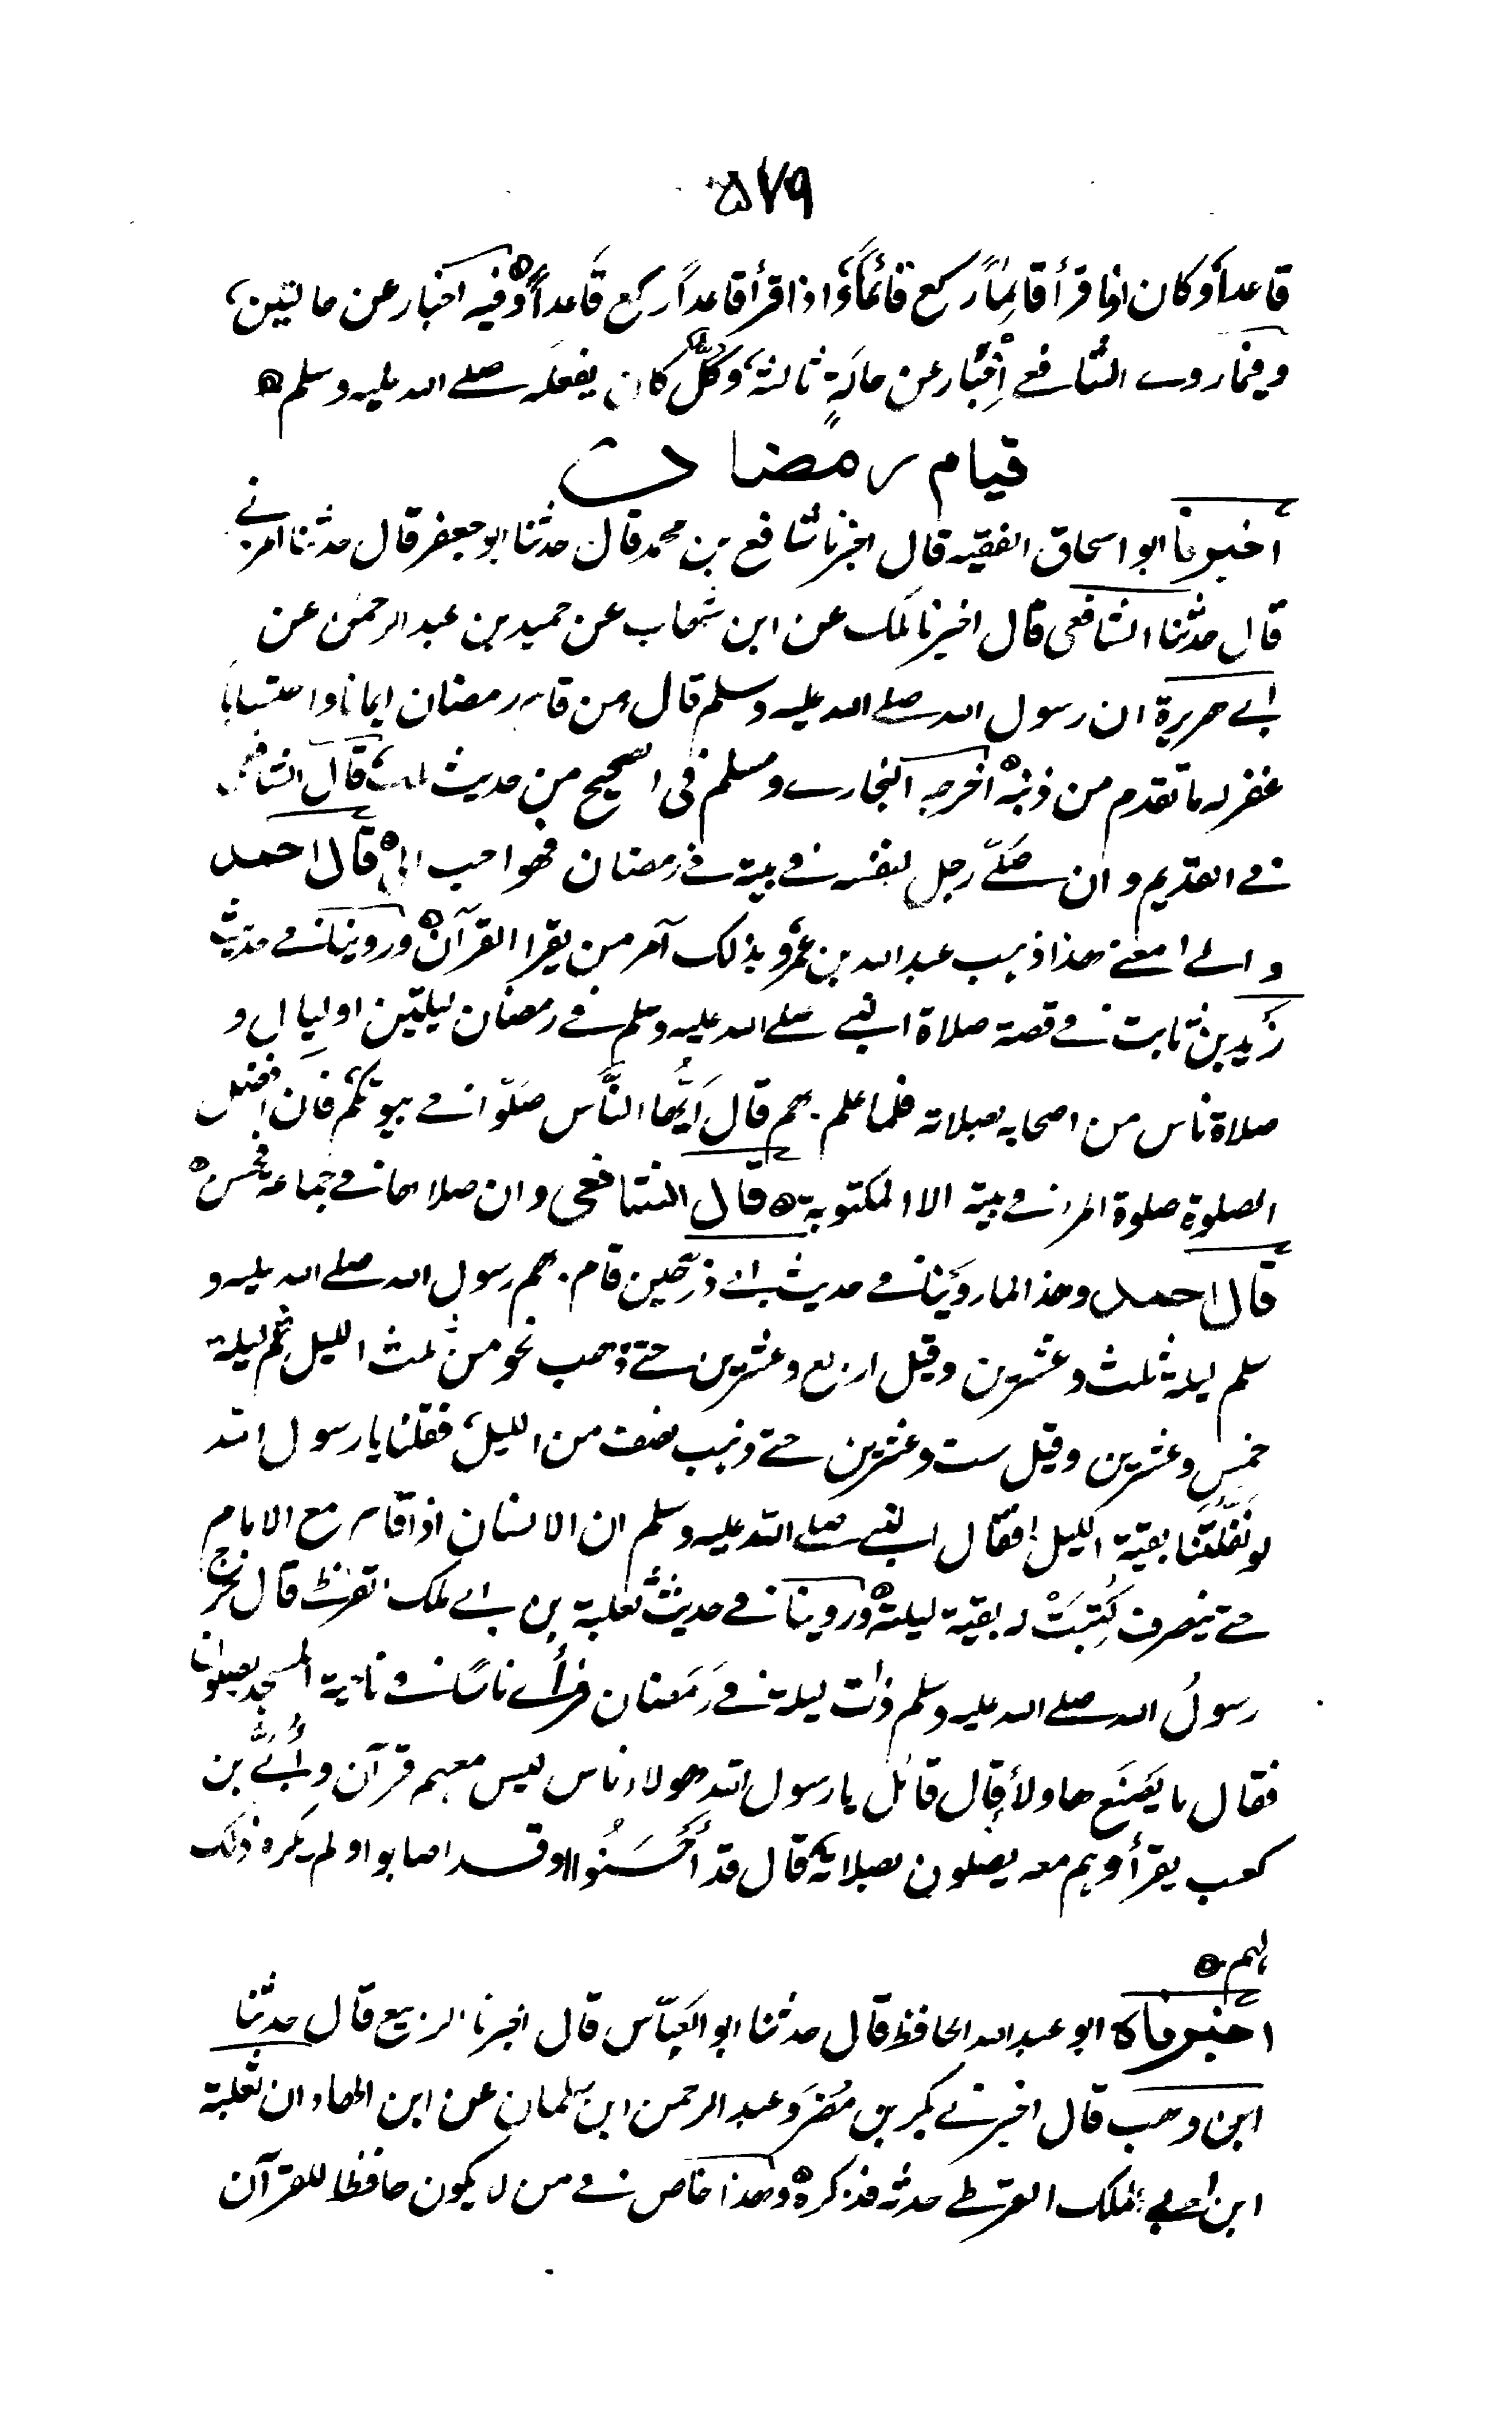 ۵۷۹
قاعداً وكان اذا قرأ قائماً ركع قائماً واذا قرأ قاعداً ركع قاعداً وفيه اخبار عن حالتين،
وفيما روى الشافعي أخبار عن حالة ثالثة، وكلٌّ كان يفعله صلى الله عليه وسلم ه
قيام رمضان
اخبرنا ابو اسحاق الفقيه قال اخبرنا شافع بن محمد قال حدثنا ابو جعفر قال حدثنا المزني
قال حدثنا الشافعي قال اخبرنا ملك عن ابن شهاب عن حميد بن عبد الرحمن عن
ابي هريرة ان رسول الله صلى الله عليه وسلم قال من قام رمضان ايمانا واحتسابا
غفر له ما تقدم من ذنبه ه اخرجه البخاري ومسلم في الصحيح من حديث ملك، قال الشافعي
في القديم وان صلّى رجل لنفسه في بيته في رمضان فهو احب الي ه قال احمد
والى معنى هذا ذهب عبد الله بن عمر، وبذلك آمر من يقرا القرآن ه وروينا في حديث
زيد بن ثابت في قصة صلاة النبي صلى الله عليه وسلم في رمضان ليلتين او ليال و
صلاة ناس من اصحابه بصلاته فلما علم بهم قال أيُّها النَّاس صَلّوا في بيوتكم فان افضل
الصلوة صلوة المرء في بيته الا المكتوبة ه قال الشافعي وان صلاها في جماعة فحسن ه
قال احمد وهذا لما روينا في حديث ابي ذر حين قام بهم رسول الله صلى الله عليه و
سلم ليلة ثلث وعشرين وقيل اربع وعشرين حتى ذهب نحو من ثلث الليل ثم ليلة
خمس وعشرين وقيل ست وعشرين حتى ذهب نصف من الليل، فقلنا يا رسول الله
لو نفّلتنا بقية الليل! فقال النبي صلى الله عليه وسلم ان الانسان اذا قام مع الامام
حتى ينصرف كُتِبَتْ له بقية ليلته ه وروينا في حديث ثعلبة بن ابي ملك القرظي قال خرج
رسولُ الله صلى الله عليه وسلم ذات ليلة في رَمَضان فرأى ناسًا في ناحية المسجد يصلون
فقال ما يَصْنَع هاولاء قال قائل يا رسول الله هولاء ناس ليس معهم قرآن وأُبيّ بن
كعب يقرأ وهم معه يصلون بصلاته، قال قد أحْسَنُوا او قد اصابوا ولم يكره ذلك
لهم ه
اخبرناه ابو عبد الله الحافظ قال حدثنا ابو العبّاس قال اخبرنا الربيع قال حدثنا
ابن وهب قال اخبرني بكر بن مُضَر وعبد الرحمن ابن سلمان عن ابن الهاد ان ثعلبة
ابن ابي ملك القرظي حدثه فذكره ه وهذا خاص في من لا يكون حافظا للقرآن